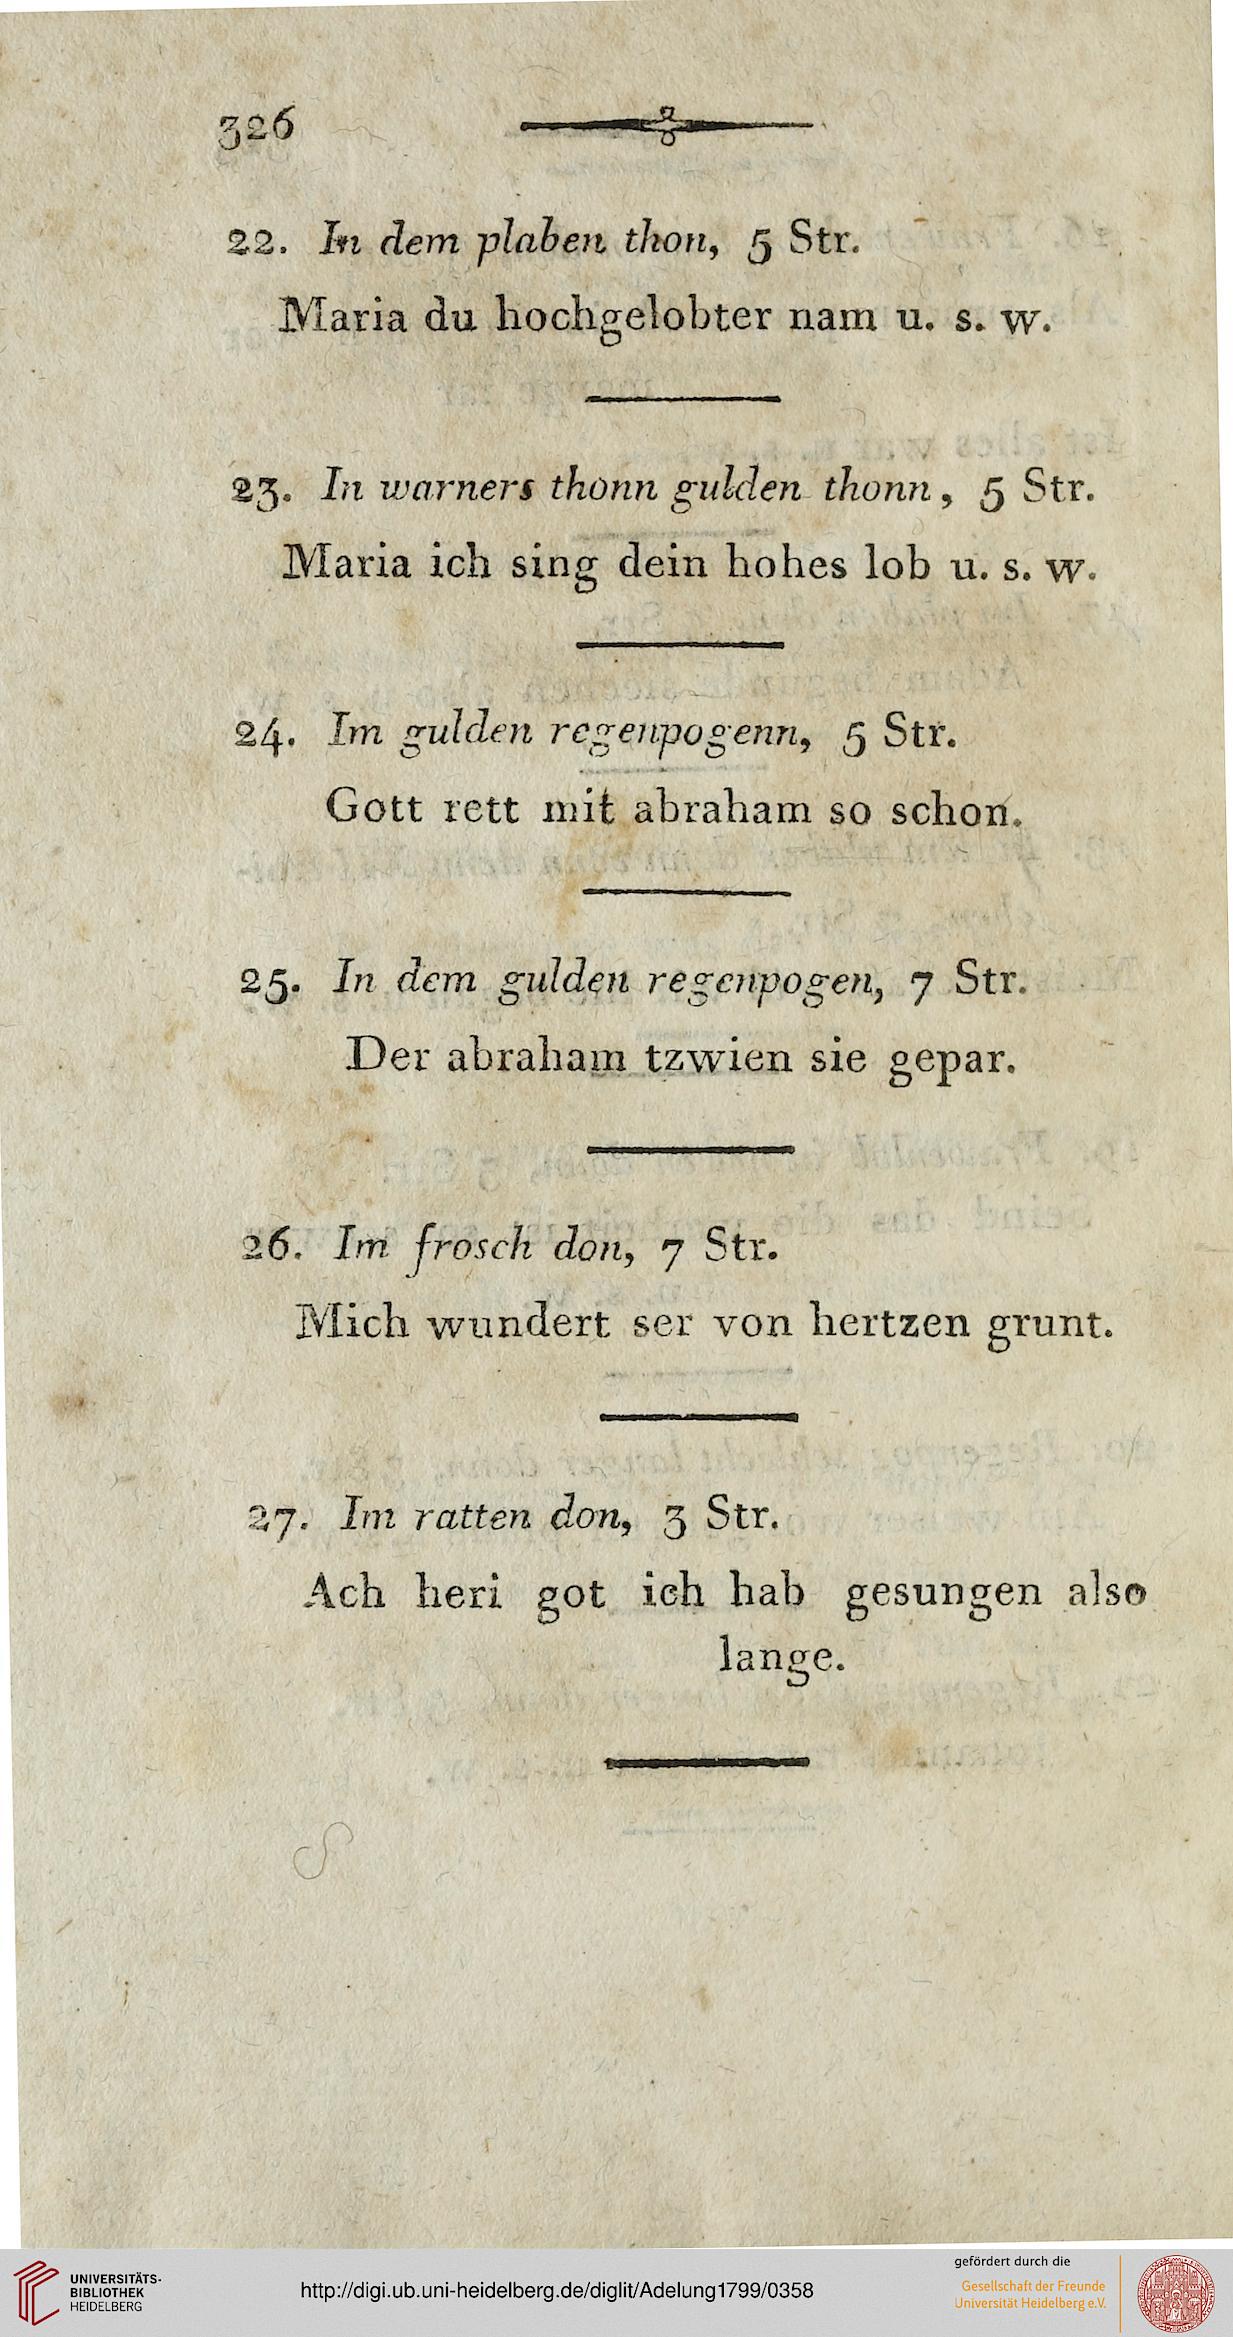 326
22. In dem plaben thon, 5 Str.
Maria du hochgelobter nam u. s. w.
23. In warners thonn gulden thonn, 5 Str.
Maria ich sing dein hohes lob u. s. w.
24. Im gulden regenpogenn, 5 Str.
Gott rett mit abraham so schon.
25. In dem gulden regenpogen, 7 Str.
Der abraham tzwien sie gepar.
26. Im frosch don, 7 Str.
Mich wundert ser von hertzen grunt.
27. Im ratten don, 3 Str.
Ach heri got ich hab gesungen also
lange.
UNIVERSITÄTS-
BIBLIOTHEK
HEIDELBERG
http://digi.ub.uni-heidelberg.de/diglit/Adelung1799/0358
gefördert durch die
Gesellschaft der Freunde
Universität Heidelberg e.V.